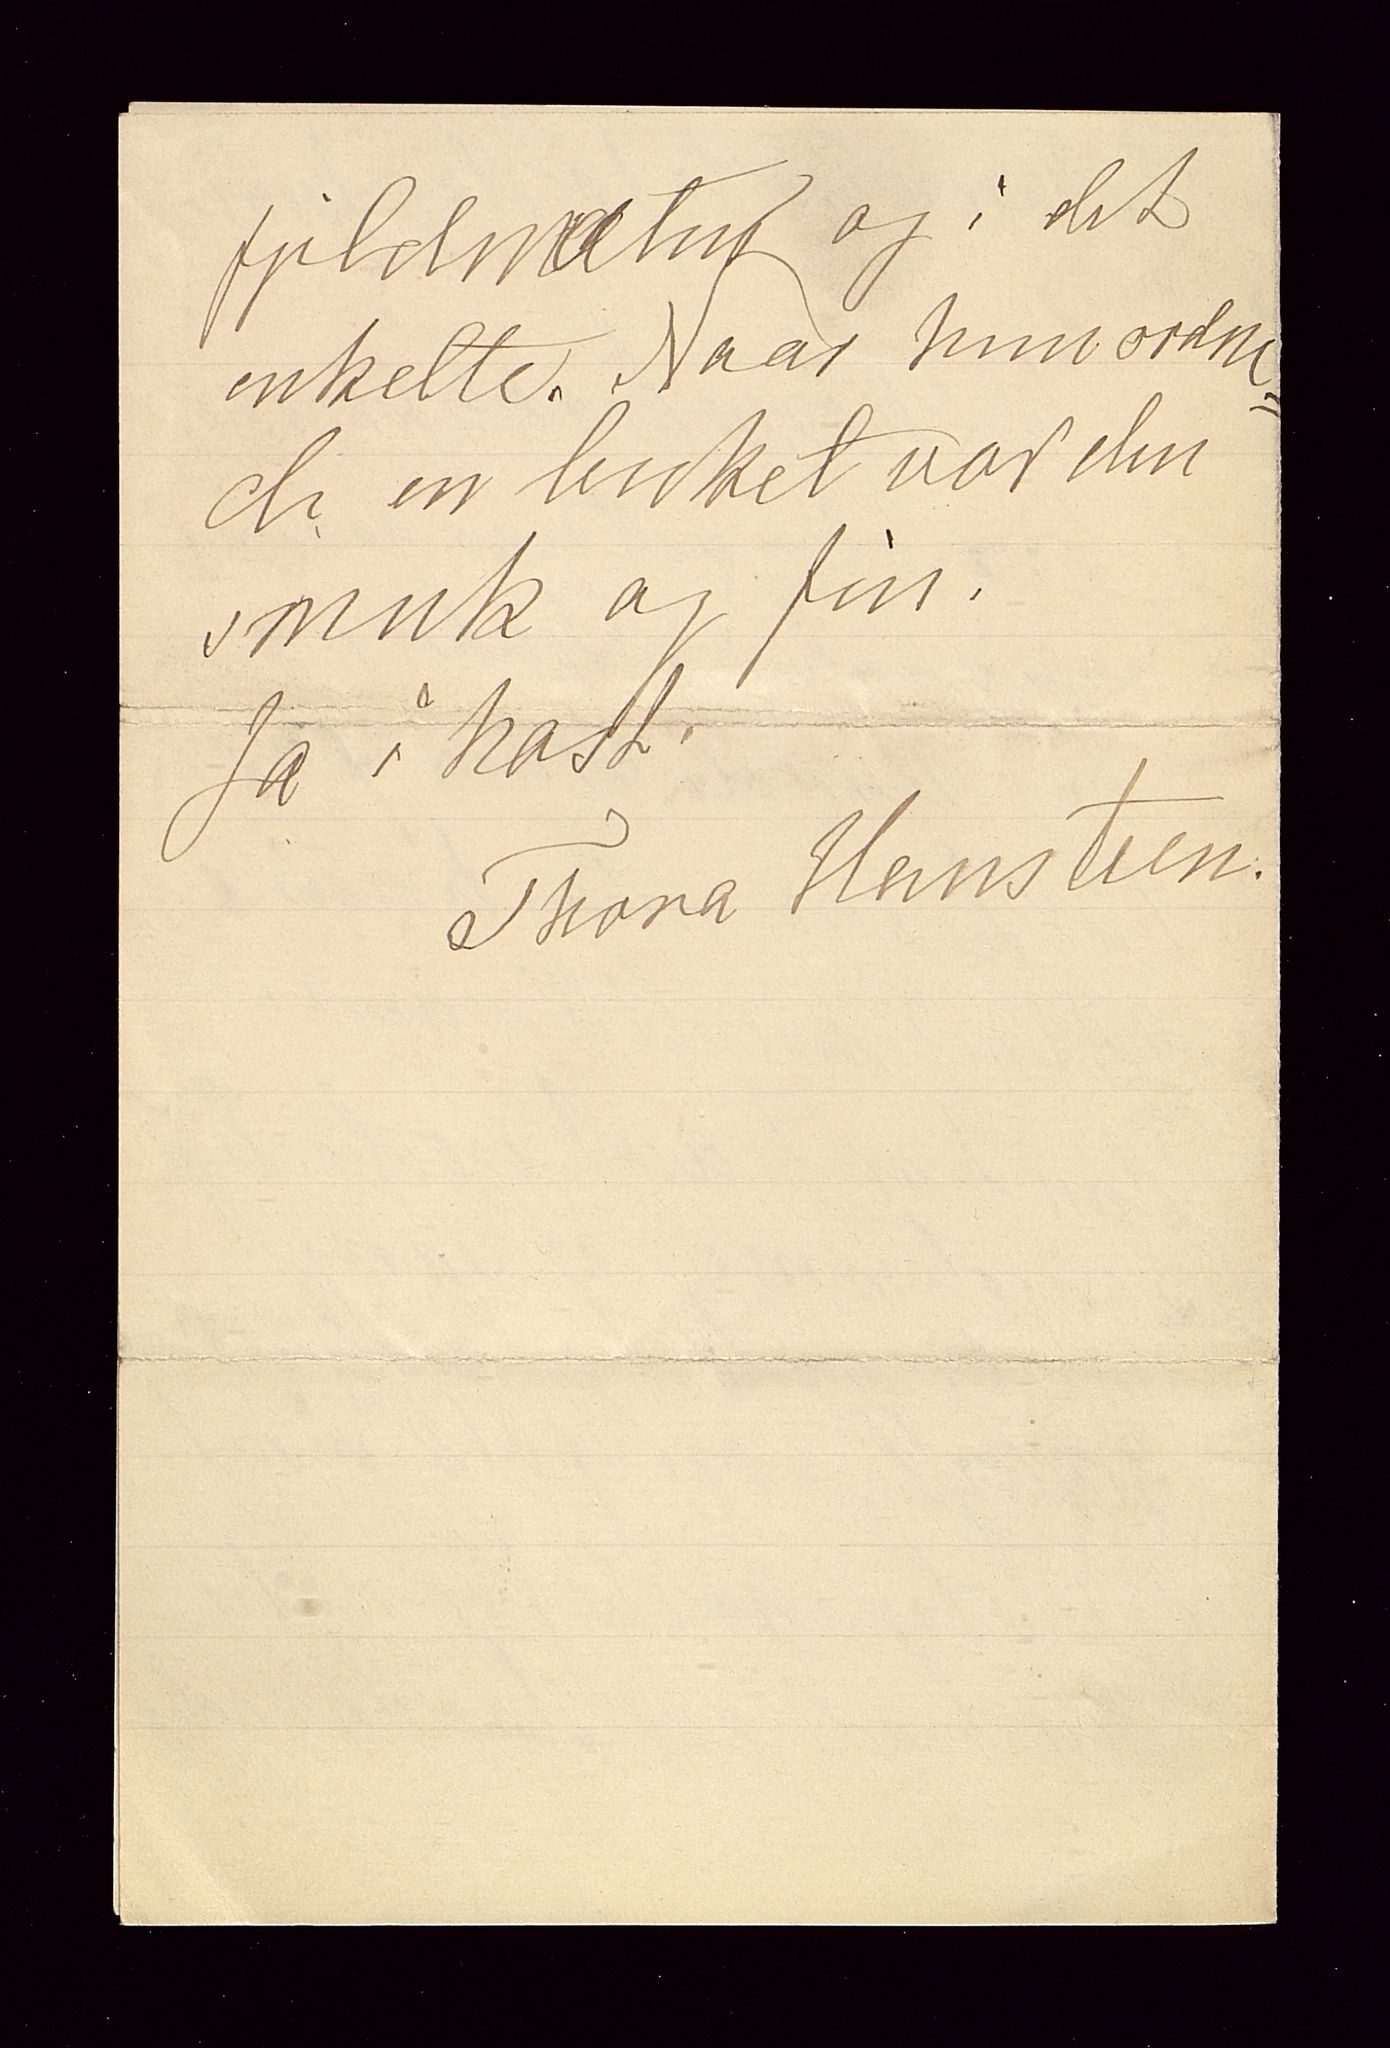 fjeldnatur og i det
enkelte. Naar hun ordne=
de en buket var den
smuk og fin.
Ja i hast.
Thora Hansteen.